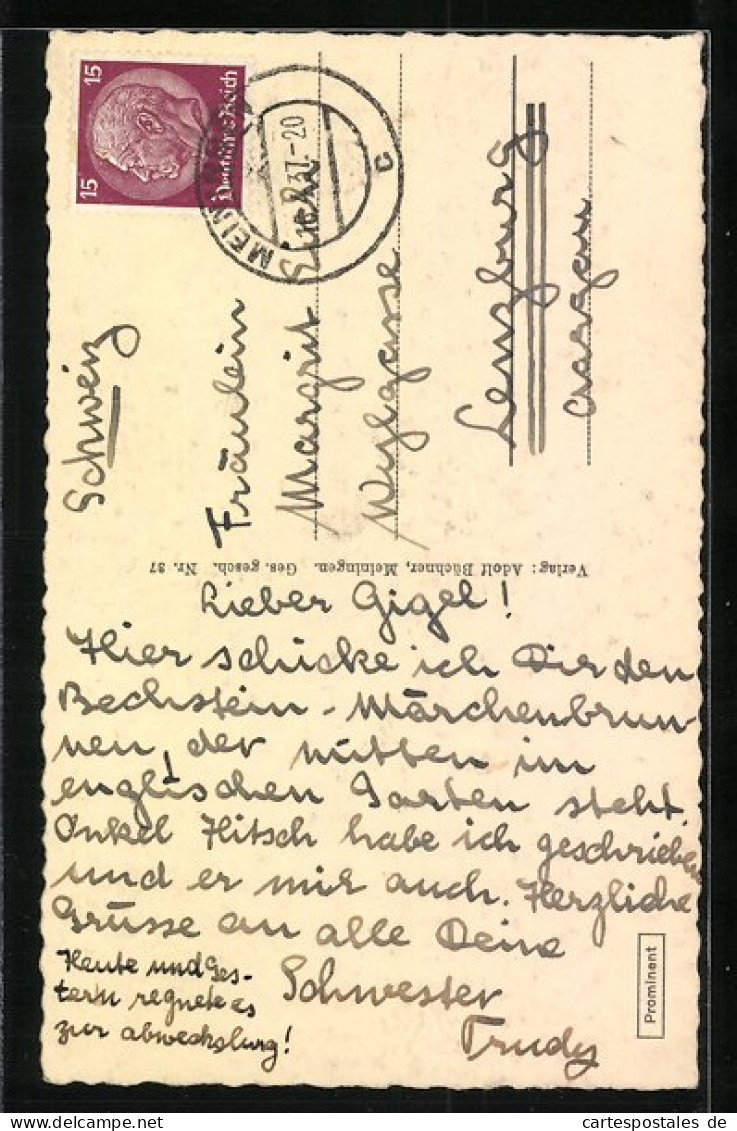 15
15
Deutsches Reich
MEIN
37.-20
c
Schweiz
Fräulein
Margrit
Wylgasse
Lenzburg
Aargau
Verlag: Adolf Büchner, Meiningen. Ges. gesch. Nr. 37
Lieber Gigel!
Hier schicke ich Dir den
Bechstein-Märchenbrun-
nen, der mitten im
englischen Garten steht.
Onkel Hitsch habe ich geschrieben
und er mir auch. Herzliche
Grüsse an alle Deine
Schwester
Trudy
Heute und Ges-
tern regnete es
zur abwechslung!
Prominent
cartespostales de